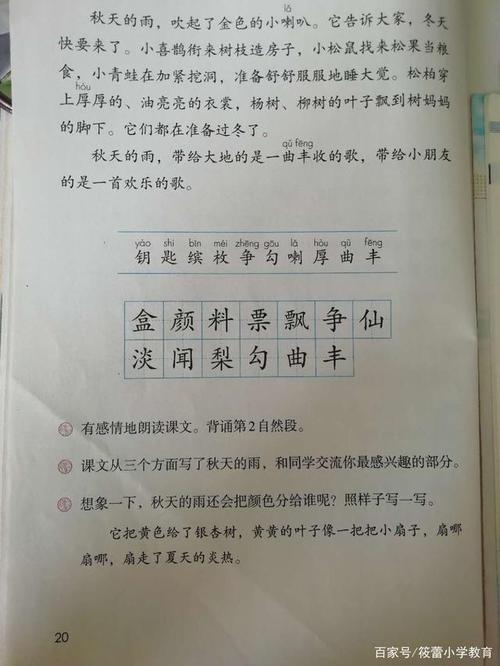 lǎ
秋天的雨，吹起了金色的小喇叭。它告诉大家，冬天
快要来了。小喜鹊衔来树枝造房子，小松鼠找来松果当粮
食，小青蛙在加紧挖洞，准备舒舒服服地睡大觉。松柏穿
hòu
上厚厚的、油亮亮的衣裳，杨树、柳树的叶子飘到树妈妈
的脚下。它们都在准备过冬了。
qǔ fēng
秋天的雨，带给大地的是一曲丰收的歌，带给小朋友
的是一首欢乐的歌。
yào shi bīn méi zhēng gōu lǎ hòu qǔ fēng
钥 匙 缤 枚 争 勾 喇 厚 曲 丰
盒 颜 料 票 飘 争 仙
淡 闻 梨 勾 曲 丰
有感情地朗读课文。背诵第2自然段。
课文从三个方面写了秋天的雨，和同学交流你最感兴趣的部分。
想象一下，秋天的雨还会把颜色分给谁呢？照样子写一写。
它把黄色给了银杏树，黄黄的叶子像一把把小扇子，扇哪
扇哪，扇走了夏天的炎热。
20
百家号/筱蕾小学教育